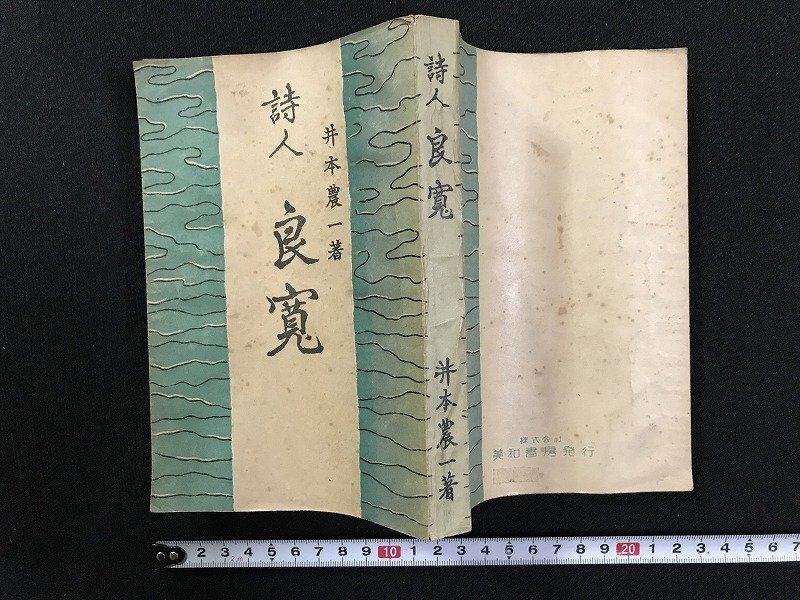 詩人 良寛
井本農一著
詩人 良寛
井本農一著
株式会社
美和書房発行
2 3 4 5 6 7 8 9 10 1 2 3 4 5 6 7 8 9 20 1 2 3 4 5 6 7
2m